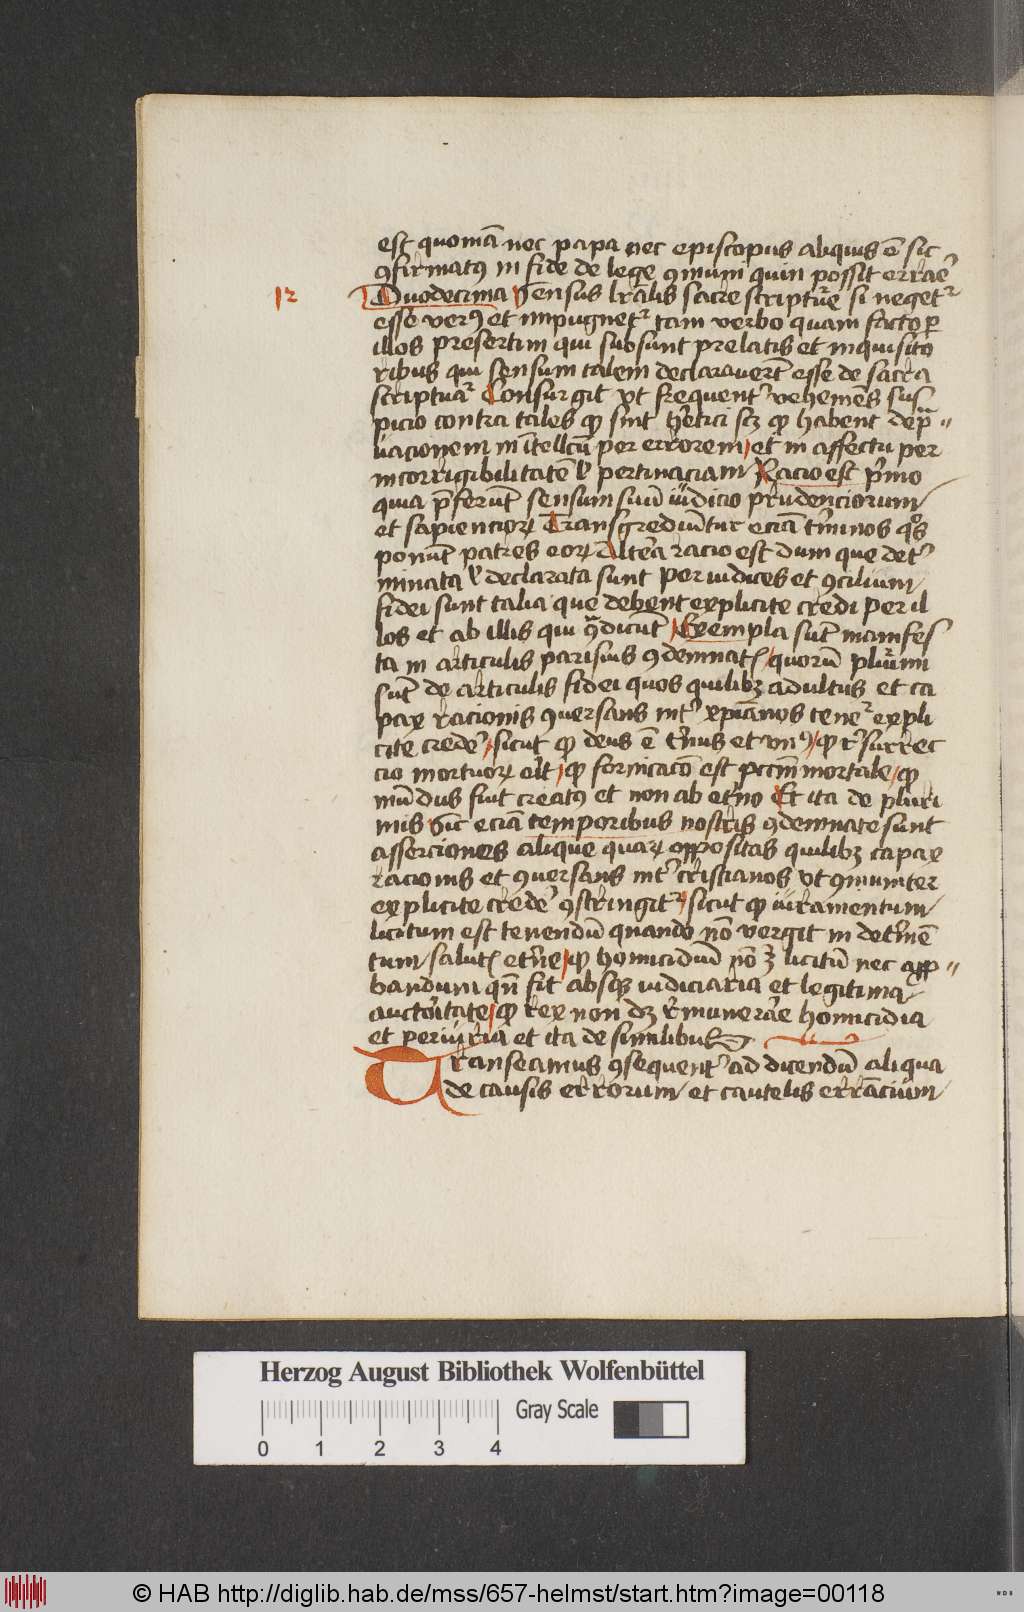 est quoniā nec papa nec episcopus aliquis ē sic
ꝯfirmatꝰ in fide de lege ꝯmuni quin possit errare
12
Duodecima Sensus lr̄alis sacre scripture si neget᷑
esse verꝰ et impugnet᷑ tam verbo quam facto ꝑ
illos presertim qui subsunt prelatis et inquisito
ribus qui sensum talem declaraverūt esse de sacra
scriptura Consurgit vt frequent᷑ vehemēs sus
picio contra tales ꝙ sint hr̄etici scꝫ ꝙ habent dep̄ᵃ
uacionem in ītellcū per errorem et in affectu per
incorrigibilitatē l̓ pertinaciam Racio est pͥmo
quia p̄ferūt sensum suū iudicio prudenciorum
et sapiencioꝝ Transgrediūtur eciā tm̓inos qͦs
ponūt patres eoꝝ Altera racio est dum que det᷑
minata l̓ declarata sunt per iudices et ꝯcilium
fidei sunt talia que debent explicite credi per il
los et ab illis qui ꝯͣdicūt Exempla sūt manifes
ta in articulis parisius ꝯdemnatꝭ quorū plurimi
sūt de articulis fidei quos quilibꝫ adultus et ca
pax racionis ꝯuersans int᷑ xp̄ianos tenet᷑ expli
cite credē sicut ꝙ deus ē tͥnus et vnꝰ ꝙ r̄surrec
cio mortuoꝝ erit ꝙ fornicacō est pctm̄ mortale ꝙ
mūdus fuit creatꝰ et non ab etn̓o Et ita de pluri
mis Sic eciā temporibus nostris ꝯdemnate sunt
asserciones alique quaꝝ oppositas quilibꝫ capax
racionis et ꝯuersans int᷑ cristianos vt ꝯmuniter
explicite credē ꝯstringit᷑ sicut ꝙ iuramentum
licitum est tenendū quando nō vergit in detm̓ē
tum salutꝭ etn̓e ꝙ homicidiū nō ē licitū nec app
bandum qn̄ fit absqꝫ iudiciaria et legitima
auctoritate ꝙ rex non dꝫ remunerare homicidia
et periuria et ita de similibus
Transeamus ꝯsequent᷑ ad dicendū aliqua
de causis errorum et cautelis errāncium
Herzog August Bibliothek Wolfenbüttel
Gray Scale
0 1 2 3 4
© HAB http://diglib.hab.de/mss/657-helmst/start.htm?image=00118